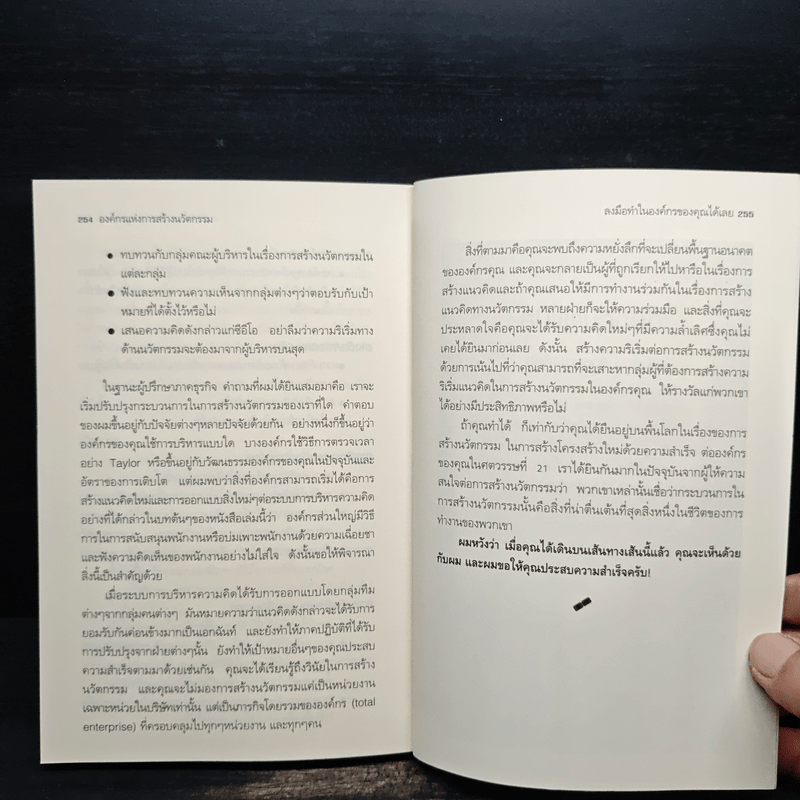 254 องค์กรแห่งการสร้างนวัตกรรม
● ทบทวนกับกลุ่มคณะผู้บริหารในเรื่องการสร้างนวัตกรรมใน
แต่ละกลุ่ม
● ฟังและทบทวนความเห็นจากกลุ่มต่างๆว่าตอบรับกับเป้า
หมายที่ได้ตั้งไว้หรือไม่
● เสนอความคิดดังกล่าวแก่ซีอีโอ อย่าลืมว่าความริเริ่มทาง
ด้านนวัตกรรมจะต้องมาจากผู้บริหารบนสุด
ในฐานะผู้ปรึกษาภาคธุรกิจ คำถามที่ผมได้ยินเสมอมาคือ เราจะ
เริ่มปรับปรุงกระบวนการในการสร้างนวัตกรรมของเราที่ใด คำตอบ
ของผมขึ้นอยู่กับปัจจัยต่างๆหลายปัจจัยด้วยกัน อย่างหนึ่งก็ขึ้นอยู่ว่า
องค์กรของคุณใช้การบริหารแบบใด บางองค์กรใช้วิธีการตรวจเวลา
อย่าง Taylor หรือขึ้นอยู่กับวัฒนธรรมองค์กรของคุณในปัจจุบันและ
อัตราของการเติบโต แต่ผมพบว่าสิ่งที่องค์กรสามารถเริ่มได้คือการ
สร้างแนวคิดใหม่และการออกแบบสิ่งใหม่ๆต่อระบบการบริหารความคิด
อย่างที่ได้กล่าวในบทต้นๆของหนังสือเล่มนี้ว่า องค์กรส่วนใหญ่มีวิธี
การในการสนับสนุนพนักงานหรือบ่มเพาะพนักงานด้วยความเฉื่อยชา
และฟังความคิดเห็นของพนักงานอย่างไม่ใส่ใจ ดังนั้นขอให้พิจารณา
สิ่งนี้เป็นสำคัญด้วย
เมื่อระบบการบริหารความคิดได้รับการออกแบบโดยกลุ่มทีม
ต่างๆจากกลุ่มคนต่างๆ มันหมายความว่าแนวคิดดังกล่าวจะได้รับการ
ยอมรับกันค่อนข้างมากเป็นเอกฉันท์ และยังทำให้ภาคปฏิบัติที่ได้รับ
การปรับปรุงจากฝ่ายต่างๆนั้น ยังทำให้เป้าหมายอื่นๆของคุณประสบ
ความสำเร็จตามมาด้วยเช่นกัน คุณจะได้เรียนรู้ถึงวินัยในการสร้าง
นวัตกรรม และคุณจะไม่มองการสร้างนวัตกรรมแค่เป็นหน่วยงาน
เฉพาะหน่วยในบริษัทเท่านั้น แต่เป็นภาระกิจโดยรวมขององค์กร (total
enterprise) ที่ครอบคลุมไปทุกๆหน่วยงาน และทุกๆคน
ลงมือทำในองค์กรของคุณได้เลย 255
สิ่งที่ตามมาคือคุณจะพบถึงความหยั่งลึกที่จะเปลี่ยนพื้นฐานอนาคต
ขององค์กรคุณ และคุณจะกลายเป็นผู้ที่ถูกเรียกให้ไปหารือในเรื่องการ
สร้างแนวคิดและถ้าคุณเสนอให้มีการทำงานร่วมกันในเรื่องการสร้าง
แนวคิดทางนวัตกรรม หลายฝ่ายก็จะให้ความร่วมมือ และสิ่งที่คุณจะ
ประหลาดใจคือคุณจะได้รับความคิดใหม่ๆที่มีความล้ำเลิศซึ่งคุณไม่
เคยได้ยินมาก่อนเลย ดังนั้น สร้างความริเริ่มต่อการสร้างนวัตกรรม
ด้วยการเน้นไปที่ว่าคุณสามารถที่จะเสาะหากลุ่มผู้ที่ต้องการสร้างความ
ริเริ่มแนวคิดในการสร้างนวัตกรรมในองค์กรคุณ ให้รางวัลแก่พวกเขา
ได้อย่างมีประสิทธิภาพหรือไม่
ถ้าคุณทำได้ ก็เท่ากับว่าคุณได้ยืนอยู่บนพื้นโลกในเรื่องของการ
สร้างนวัตกรรม ในการสร้างโครงสร้างใหม่ด้วยความสำเร็จ ต่อองค์กร
ของคุณในศตวรรษที่ 21 เราได้ยินกันมากในปัจจุบันจากผู้ให้ความ
สนใจต่อการสร้างนวัตกรรมว่า พวกเขาเหล่านั้นเชื่อว่ากระบวนการใน
การสร้างนวัตกรรมนั้นคือสิ่งที่น่าตื่นเต้นที่สุดสิ่งหนึ่งในชีวิตของการ
ทำงานของพวกเขา
ผมหวังว่า เมื่อคุณได้เดินบนเส้นทางเส้นนี้แล้ว คุณจะเห็นด้วย
กับผม และผมขอให้คุณประสบความสำเร็จครับ!